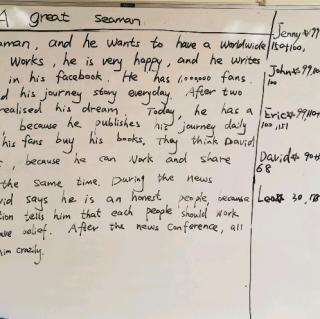 A great seaman.
aman, and he wants to have a worldwide
Works, he is very happy, and he writes
in his facebook. He has 1,000000 fans.
d his journey story everyday. After two
realised his dream. Today, he has a
, because he publishes his journey daily
his fans buy his books. They think David
, because he can Work and share
the same time. During the news
vid says he is an honest people, because
tion tells him that each people should work
ave belief. After the news conference, all
him crazily.
Jenny
150+100,
John
100
Eric
100, 151
David
68
Leo 30, 18